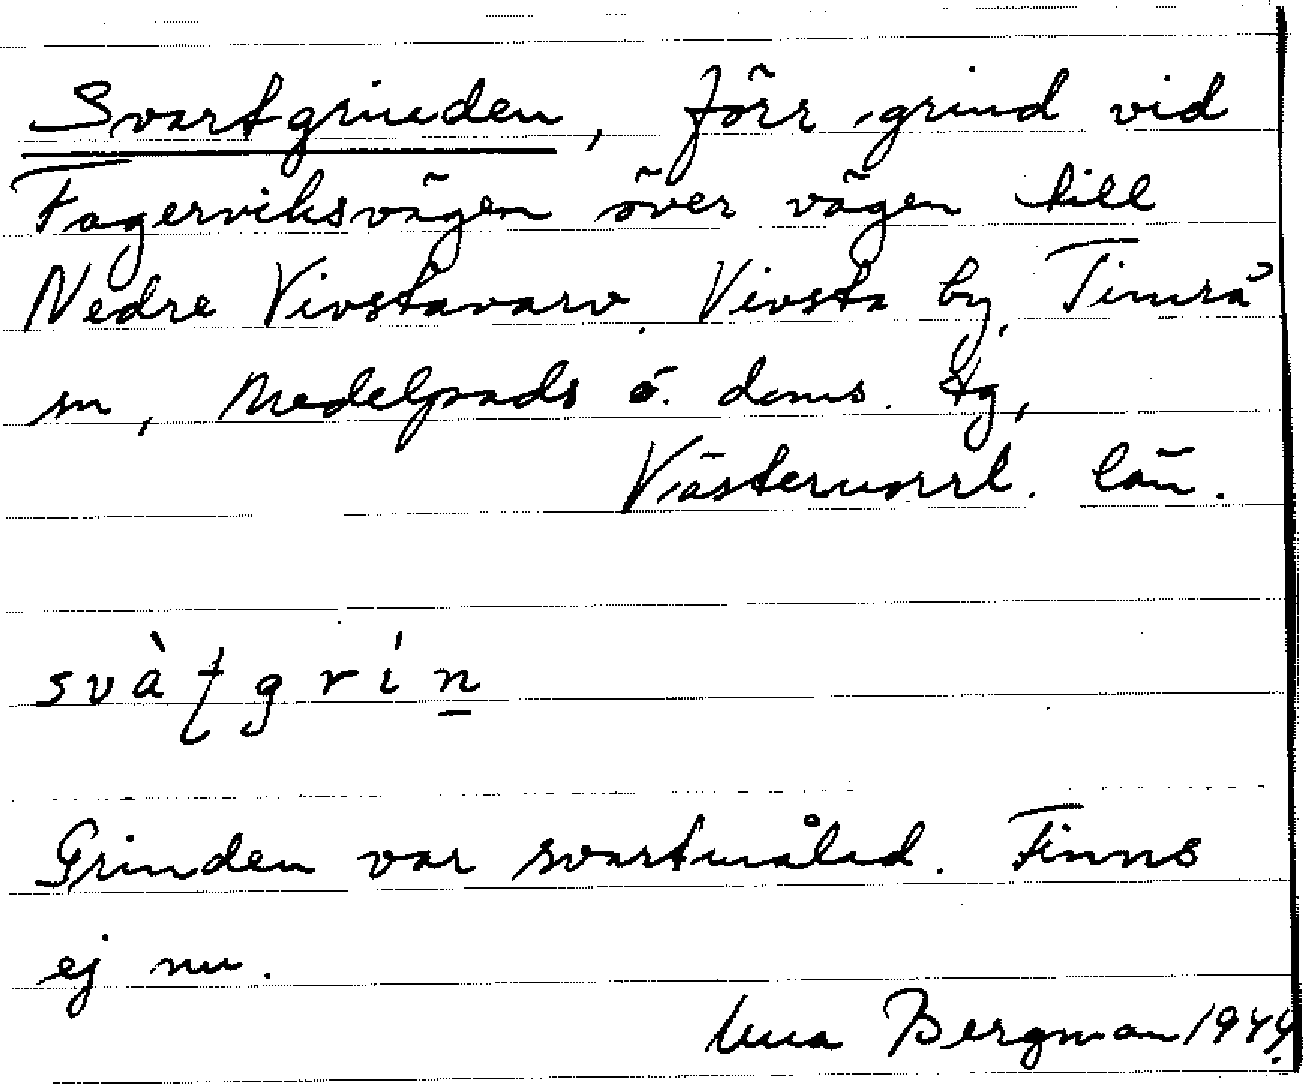 Svartgrinden, förr grind vid
Fagerviksvägen över vägen till
Nedre Vivstavarv. Vivsta by, Timrå
sn, Medelpads ö. doms. tg,
Västernorrl. län.
svàƫgrín̲
Grinden var svartmålad. Finns
ej nu.
Bergman 1949.